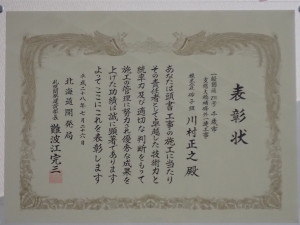 表彰状
川村正之 殿
あなたは頭書工事の施工に当たり
その責任者として卓越した技術力と
統率力及び適切な判断をもって
施工の管理に努力され優秀な成果を
上げた功績は誠に顕著であります
よってここにこれを表彰します
平成二十八年七月二十六日
北海道開発局
札幌開発建設部長 難波江完三